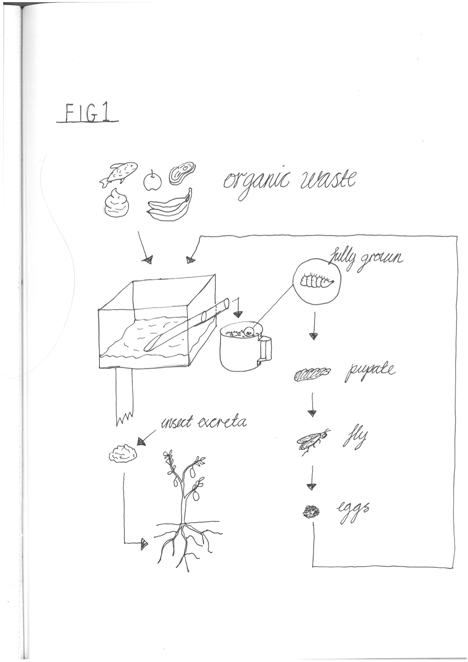 FIG1
organic waste
fully grown
pupate
insect excreta
fly
eggs